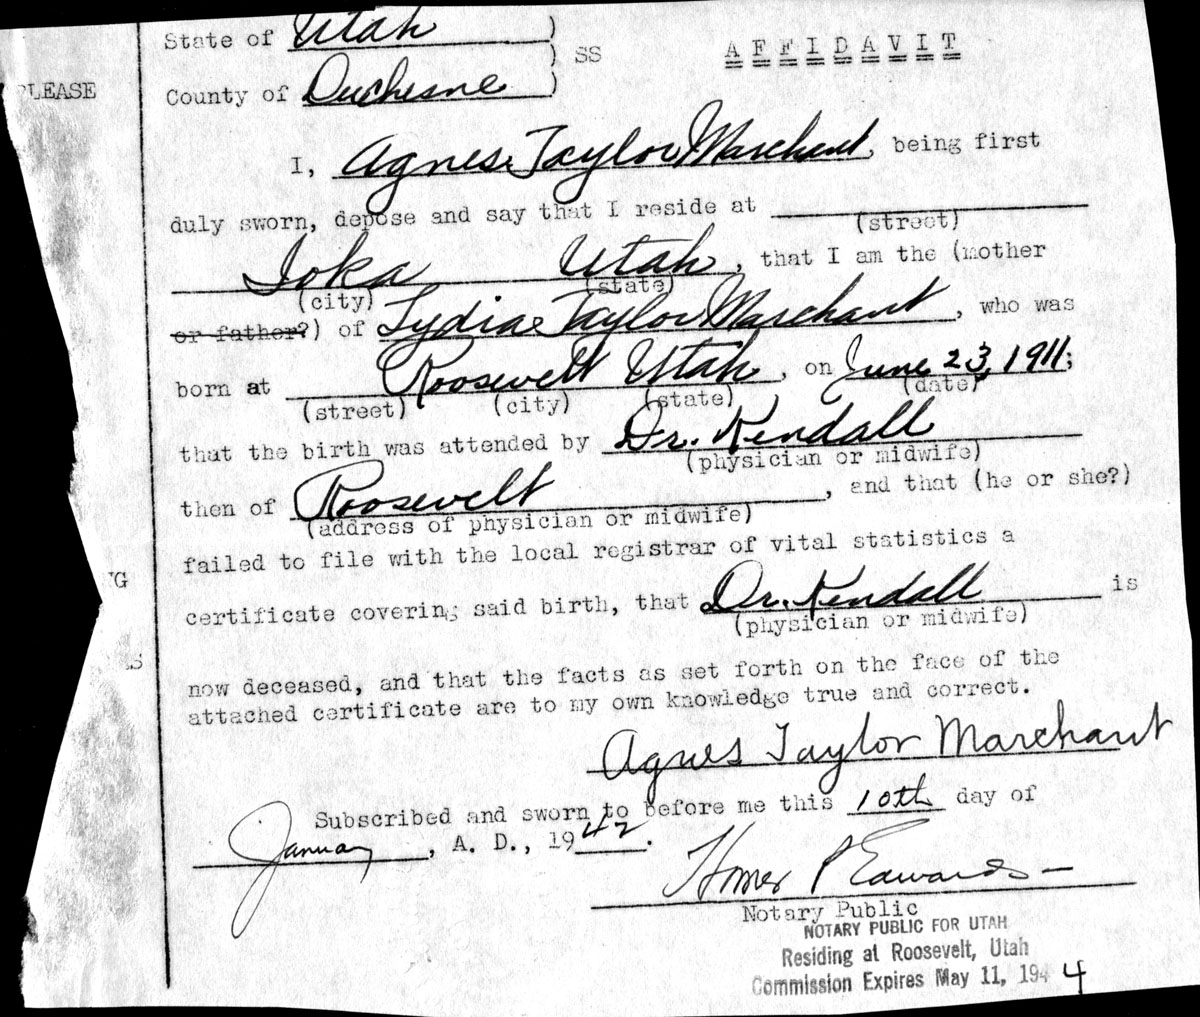 State of Utah )
) SS
A F F I D A V I T
PLEASE
County of Duchesne )
I, Agnes Taylor Marchant, being first
duly sworn, depose and say that I reside at
(street)
Ioka Utah, that I am the (mother
(city) (state)
or father?) of Lydia Taylor Marchant, who was
born at Roosevelt Utah, on June 23, 1911;
(street) (city) (state) (date)
that the birth was attended by Dr. Kendall
(physician or midwife)
then of Roosevelt, and that (he or she?)
(address of physician or midwife)
failed to file with the local registrar of vital statistics a
NG
certificate covering said birth, that Dr. Kendall is
(physician or midwife)
S
now deceased, and that the facts as set forth on the face of the
attached certificate are to my own knowledge true and correct.
Agnes Taylor Marchant
Subscribed and sworn to before me this 10th day of
January, A. D., 1942.
Homer P Edwards
Notary Public
NOTARY PUBLIC FOR UTAH
Residing at Roosevelt, Utah
Commission Expires May 11, 1944